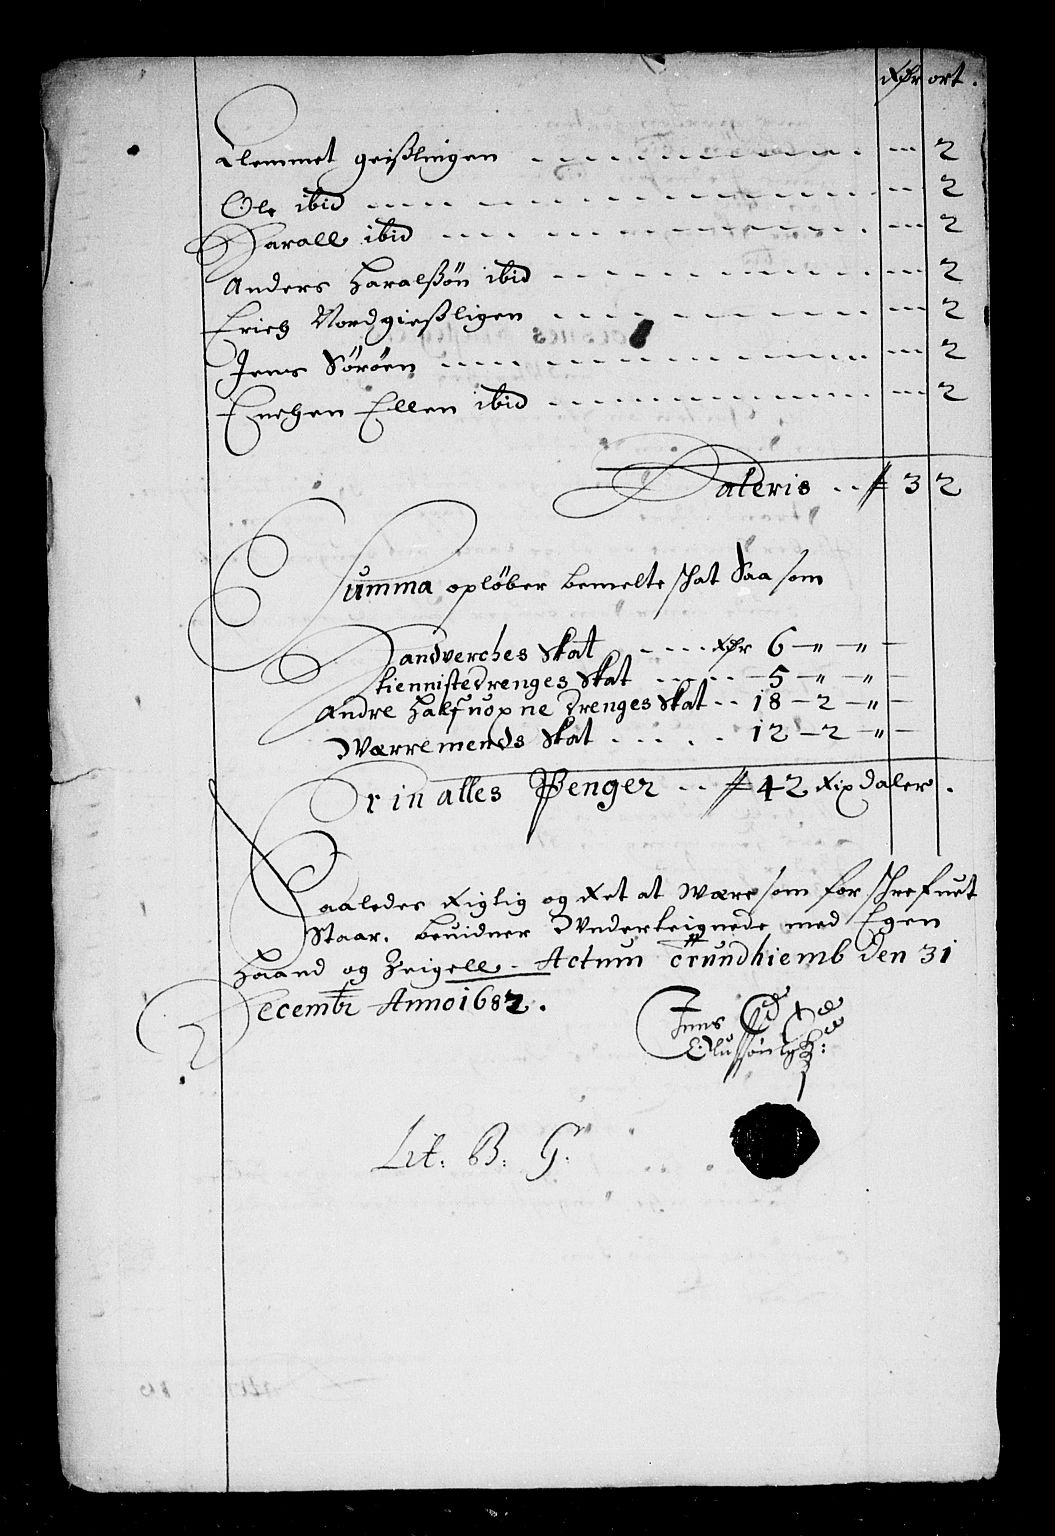 Rdr ort.
Clemmet geißlingen - - - 2
Ole ibid - - - 2
Harall ibid - - - 2
Anders Haralßøn ibid - - - 2
Erich Nordgießligen - - - 2
Jens Sørøen - - - 2
Enchen Ellen ibid - - - 2
Lateris - - 3 2
Summa opløber bemelte schat Saa som
Handverches Skat - - - Rdr 6 - " - " -
tiennistedrenges Skat - - - 5 - " - " -
Andre Halfuoxne Drenges Skat - - 18 - 2 - " -
Værremends Skat - - - 12 - 2 - " -
Er in alles Penger - - 42 Rixdaler.
Saaledes Rigtig og Ret at være som for schrefuet
Staar. beuidner Underteignede med Egen
Haand og Zeigell. Actum Trundhiemb den 31
Decembr Anno 1682.
Jens
Olussøn
Lit: B: G: